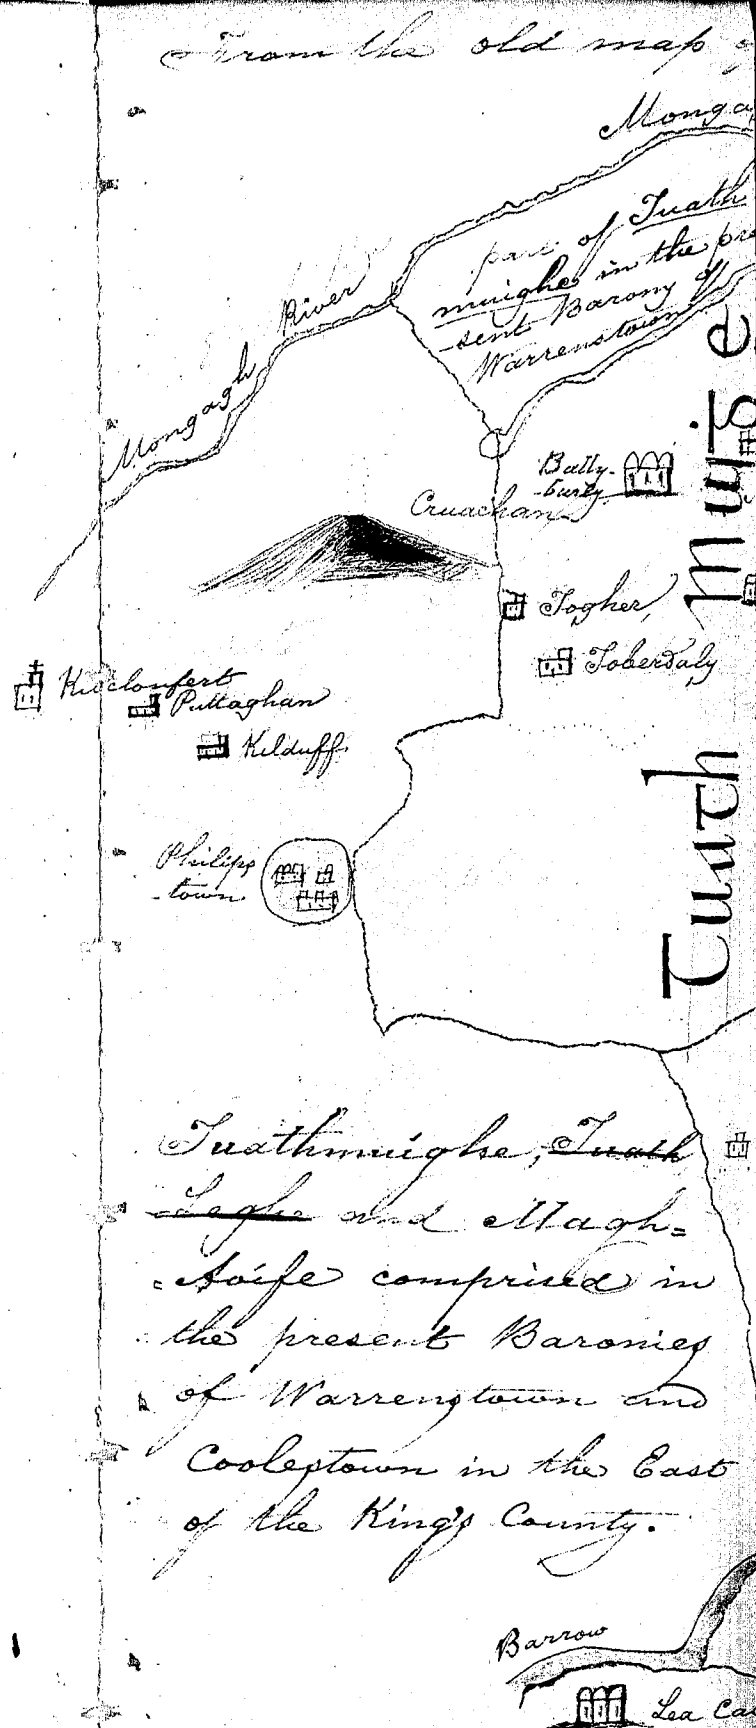 From the old map
Monga
part of Tuath
muighe in the pre
-sent Barony of
Warrenstown
Mongagh River
Bally-
-burly
Cruachan
Togher,
Toberdaly
Kilclonfert
Puttaghan
Kilduff
Philips
-town
Tuath Muiġe
Tuathmuighe, Tuath
Leghe and Magh=
=Aoife comprised in
the present Baronies
of Warrenstown and
Coolestown in the East
of the King's County.
Barrow
Lea Ca